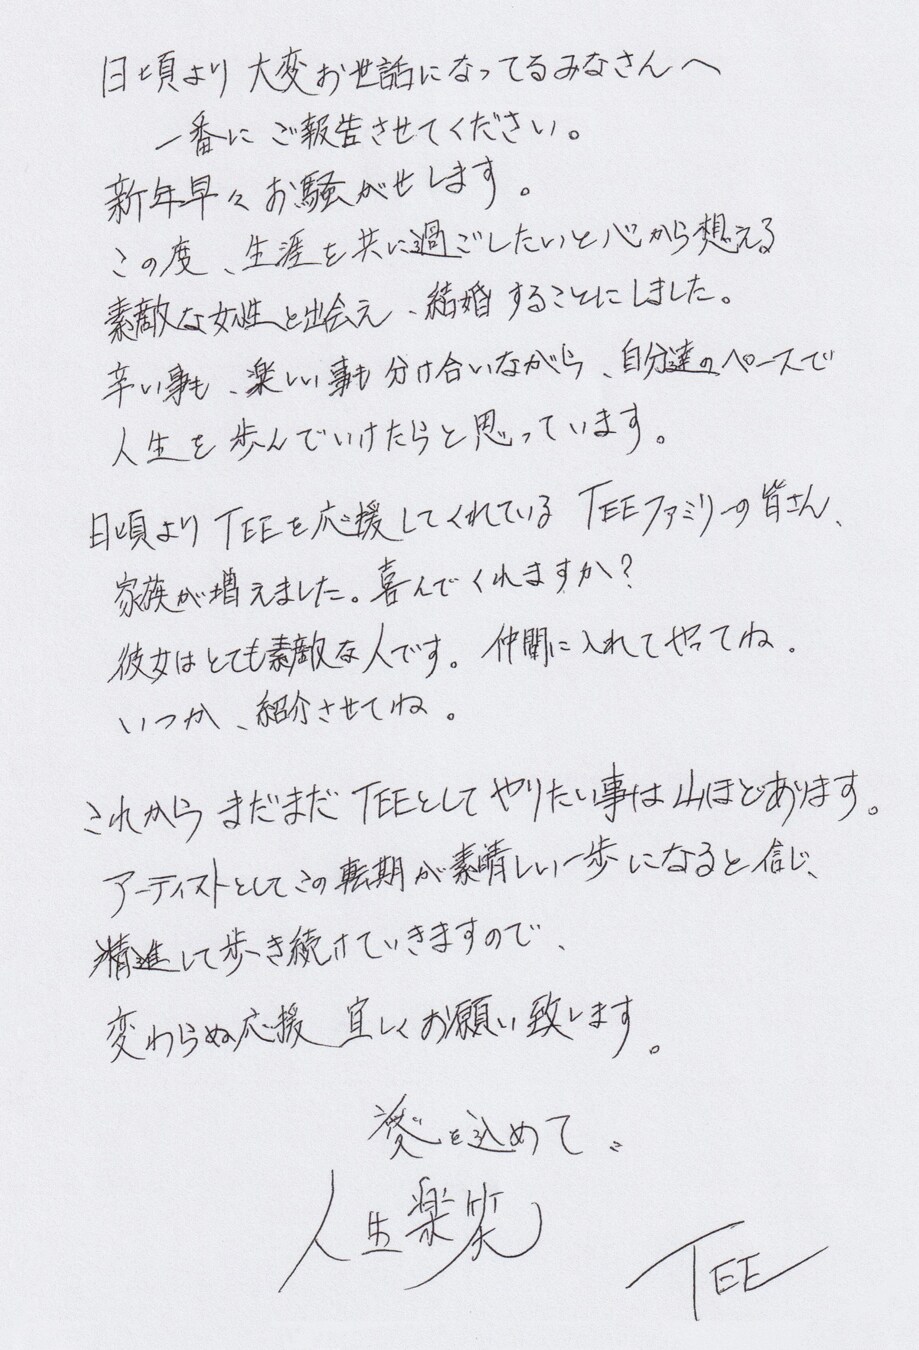 日頃より 大変お世話になってるみなさんへ
一番に ご報告させてください。
新年早々 お騒がせします。
この度、生涯を共に過ごしたいと心から想える
素敵な女性と出会え、結婚することにしました。
辛い事も、楽しい事も 分け合いながら、自分達のペースで
人生を歩んでいけたらと思っています。
日頃より TEEを応援してくれている TEEファミリーの皆さん、
家族が増えました。喜んでくれますか?
彼女はとても素敵な人です。仲間に入れてやってね。
いつか、紹介させてね。
これから まだまだ TEEとして やりたい事は山ほどあります。
アーティストとしてこの転期が素晴しい一歩になると信じ、
精進して歩き続けていきますので、
変わらぬ応援 宜しくお願い致します。
愛を込めて。
人生楽笑
TEE